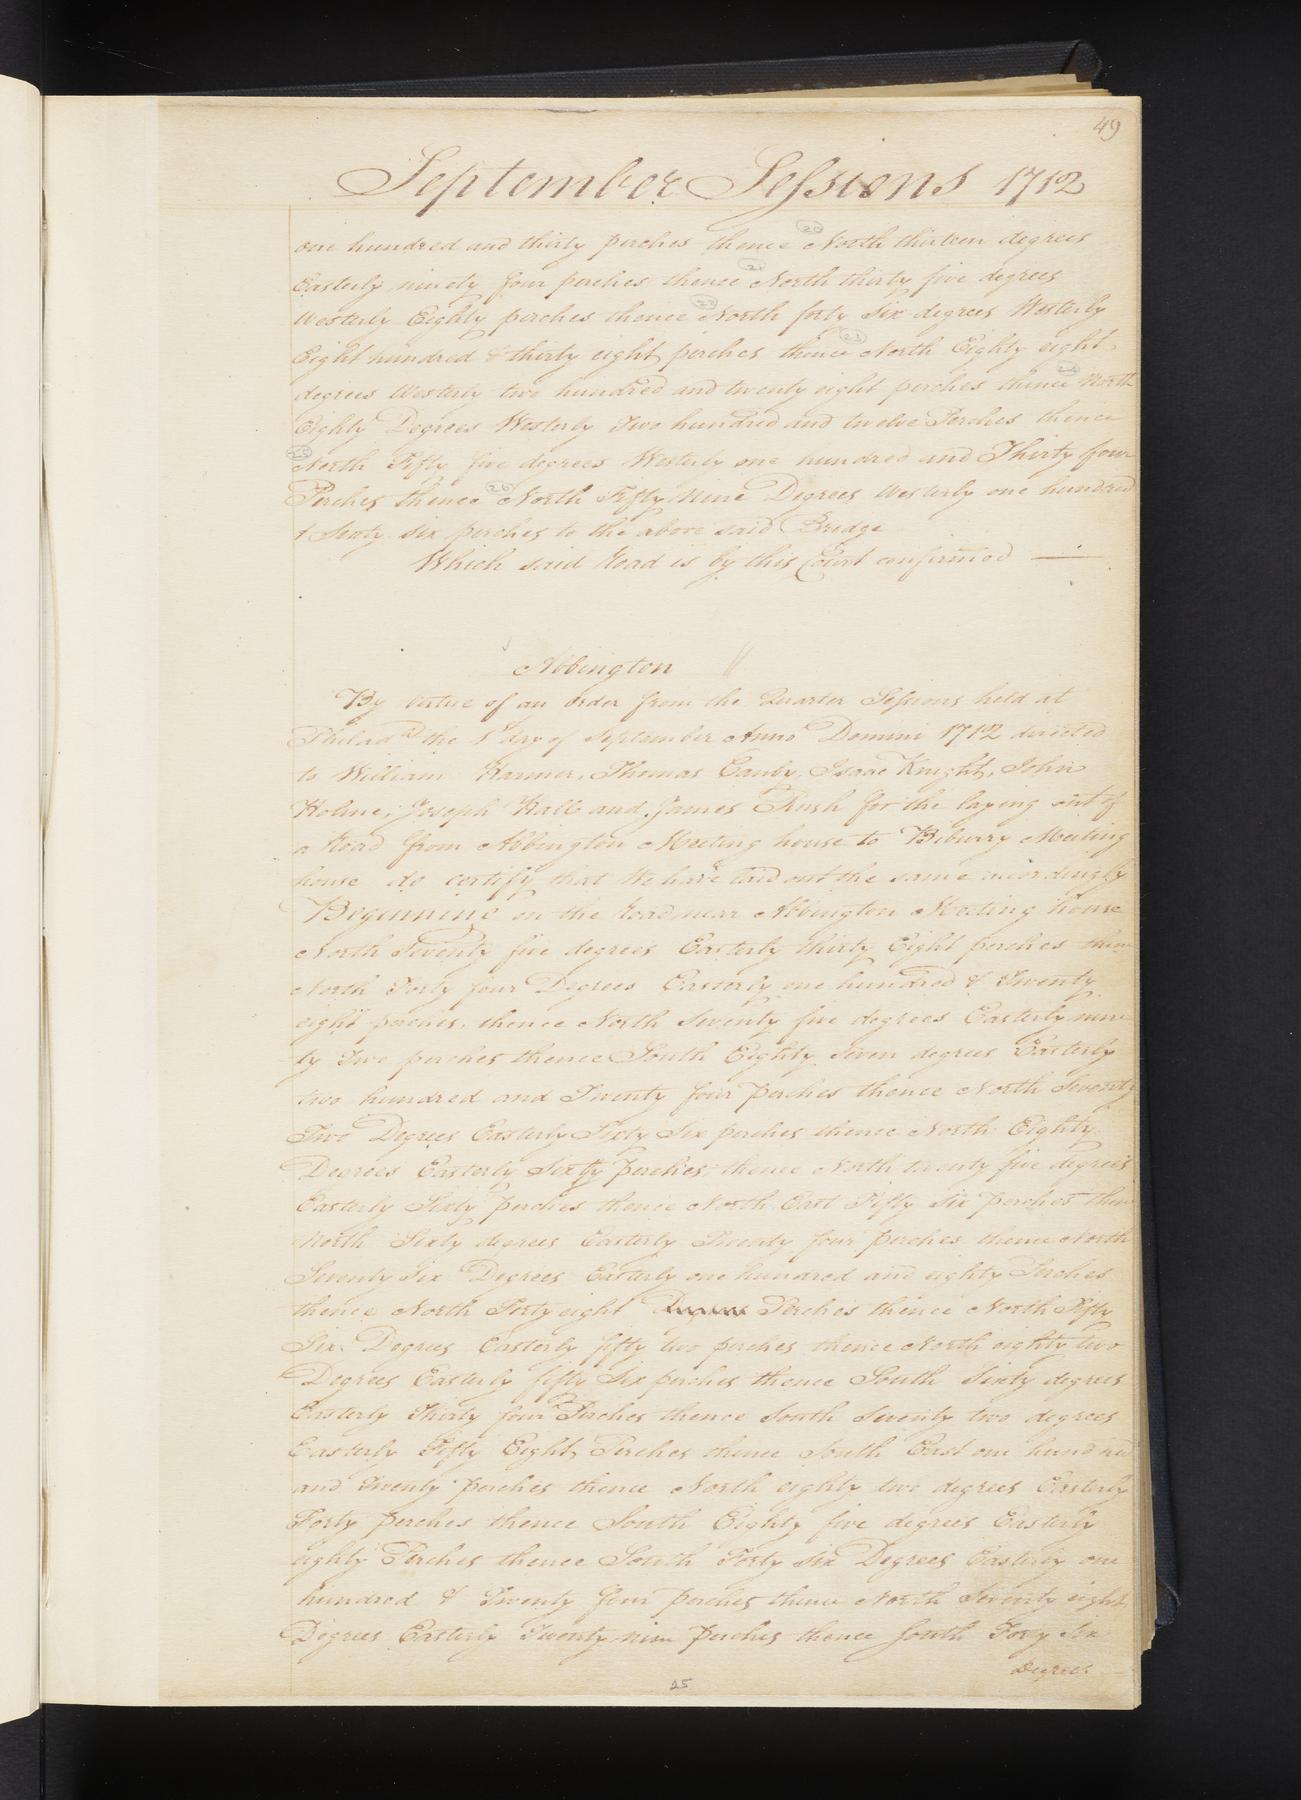 49
September Sessions 1712
one hundred and thirty perches thence (20) North thirteen degrees
Easterly ninety four perches thence (21) North thirty five degrees
Westerly Eighty perches thence (22) North forty Six degrees Westerly
Eight hundred & thirty eight perches thence (23) North Eighty eight
degrees Westerly two hundred and twenty eight perches thence (24) North
Eighty Degrees Westerly Two hundred and twelve Perches thence
(25) North Fifty five degrees Westerly one hundred and Thirty four
Perches thence (26) North Fifty Nine Degrees Westerly one hundred
& Sixty six perches to the above said Bridge
Which said Road is by this Court confirmed —
Abbington //
By virtue of an order from the Quarter Sessions held at
Philad.ª the 1st day of September Anno Domini 1712 directed
to William Harmer, Thomas Canby, Isaac Knight, John
Holme, Joseph Hall and James Rush for the laying out of
a Road from Abbington Meeting house to Biburry Meeting
house do certify that We have laid out the same accordingly
Beginning on the Road near Abbington Meeting house
North Seventy five degrees Easterly thirty Eight perches then
North Forty four Degrees Easterly one hundred & Twenty
eight perches, thence North Seventy five degrees Easterly nine
ty Two perches thence South Eighty Seven degrees Easterly
two hundred and Twenty four perches thence North Seventy
Two Degrees Easterly Sixty Six perches thence North Eighty
Degrees Easterly Sixty perches, thence North twenty five degrees
Easterly Sixty perches thence North East Fifty six perches then
North Sixty degrees Easterly Twenty four perches thence North
Seventy Six Degrees Easterly one hundred and eighty Perches
thence North Forty eight Perches thence North Fifty
Six Degrees Easterly fifty two perches thence North eighty two
Degrees Easterly fifty Six perches thence South Sixty degrees
Easterly Thirty four Perches thence South Seventy two degrees
Easterly Fifty Eight Perches thence South East one hundred
and Twenty perches thence North eighty two degrees Easterly
Forty perches thence South Eighty five degrees Easterly
eighty Perches thence South Forty six Degrees Easterly one
hundred & Twenty four perches thence North Seventy eight
Degrees Easterly Twenty nine perches thence South Forty Six
Degrees
25